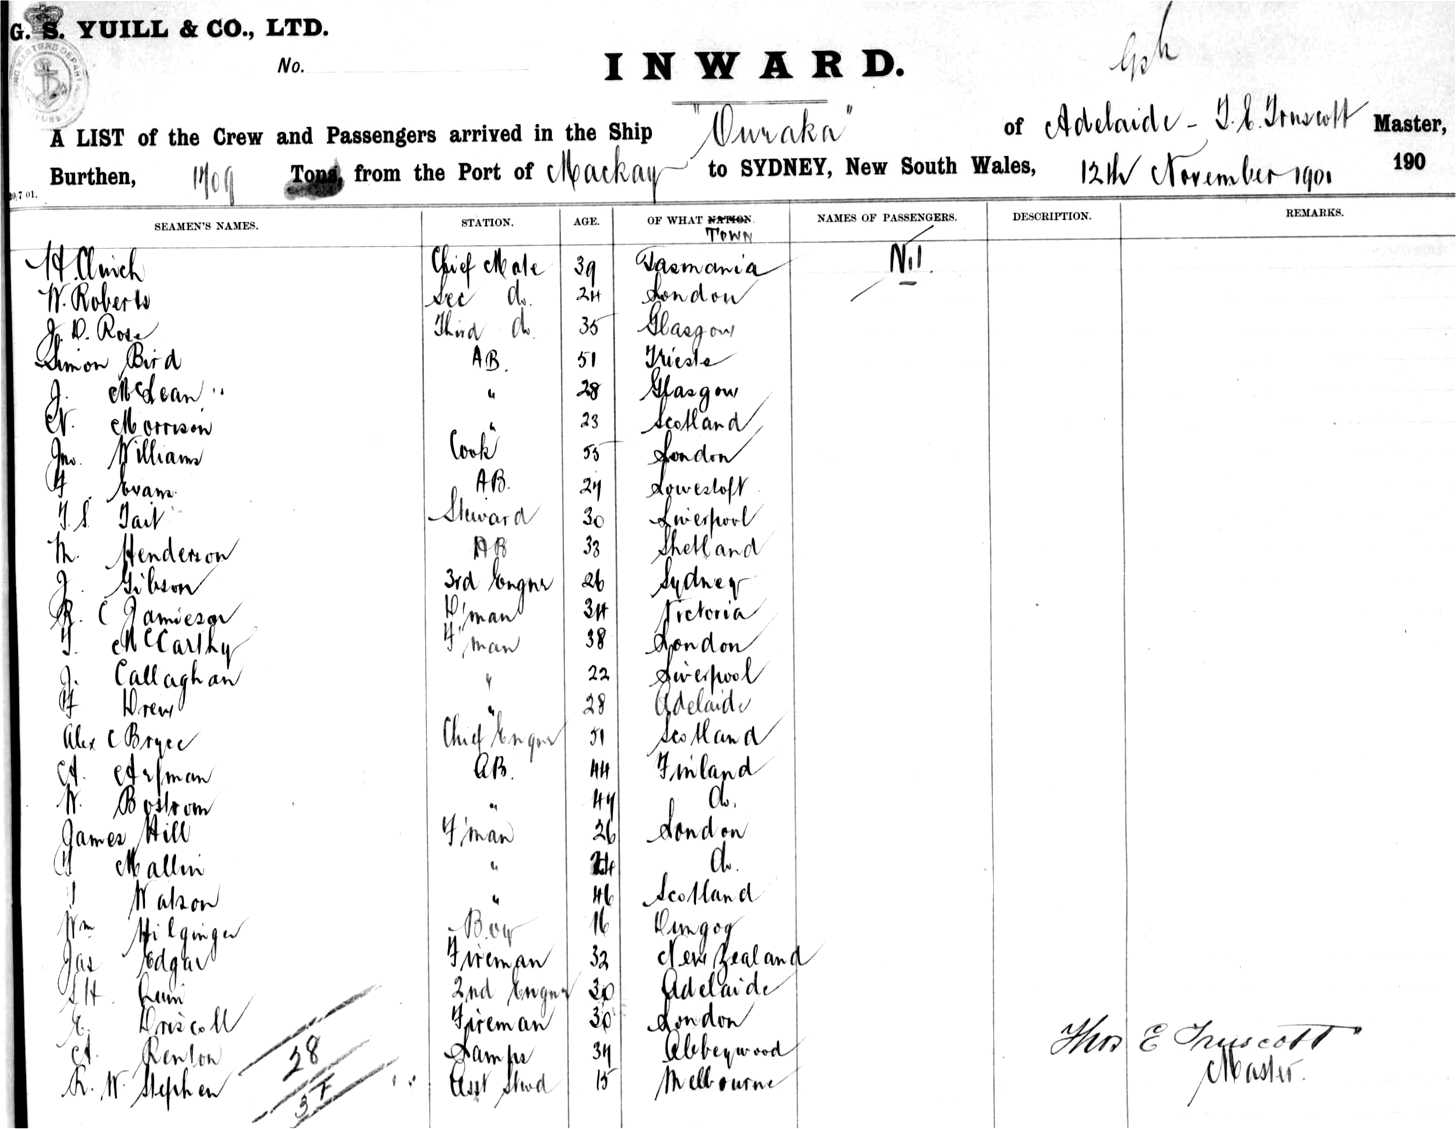 G. S. YUILL & CO., LTD.
No.
INWARD.
A LIST of the Crew and Passengers arrived in the Ship "Ouraka" of Adelaide - T. E. Truscott Master,
Burthen, 1709 Tons from the Port of Mackay to SYDNEY, New South Wales, 12th November 1901 190
SEAMEN'S NAMES. STATION. AGE. OF WHAT NATION. NAMES OF PASSENGERS. DESCRIPTION. REMARKS.
TOWN
H. Clinch Chief Mate 39 Tasmania Nil.
W. Roberts Sec do. 24 London
J. D. Rose Third do. 35 Glasgow
Simon Bird AB. 51 Trieste
J. McLean " 28 Glasgow
N. Morrison " 23 Scotland
Jno. Williams Cook 55 London
F. Evans AB. 27 Lowestoft
T. S. Tait Steward 30 Liverpool
M. Henderson AB 33 Shetland
J. Gibson 3rd Engnr 26 Sydney
R. C Jamieson D'man 34 Victoria
T. McCarthy F'man 38 London
J. Callaghan " 22 Liverpool
F Drew " 28 Adelaide
Alex C Bryce Chief Engnr 51 Scotland
A. AB. 44 Finland
W. Bostrom " 47 do.
James Hill F'man 26 London
Mallin " 24 do.
Watson " 46 Scotland
Wm Hilginger Boy 16 Dungog
Jas Edgar Fireman 32 New Zealand
S. H. 2nd Engnr 30 Adelaide
E. Driscoll Fireman 30 London
A. Renton Lamps 37 Abbeywood
R. W Stephen Asst Stwd 15 Melbourne
28
37
Thos E Truscott
Master.